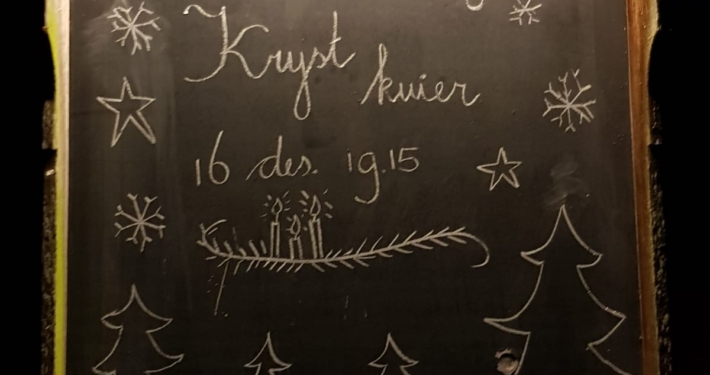 Kryst
kuier
16 des. 19.15